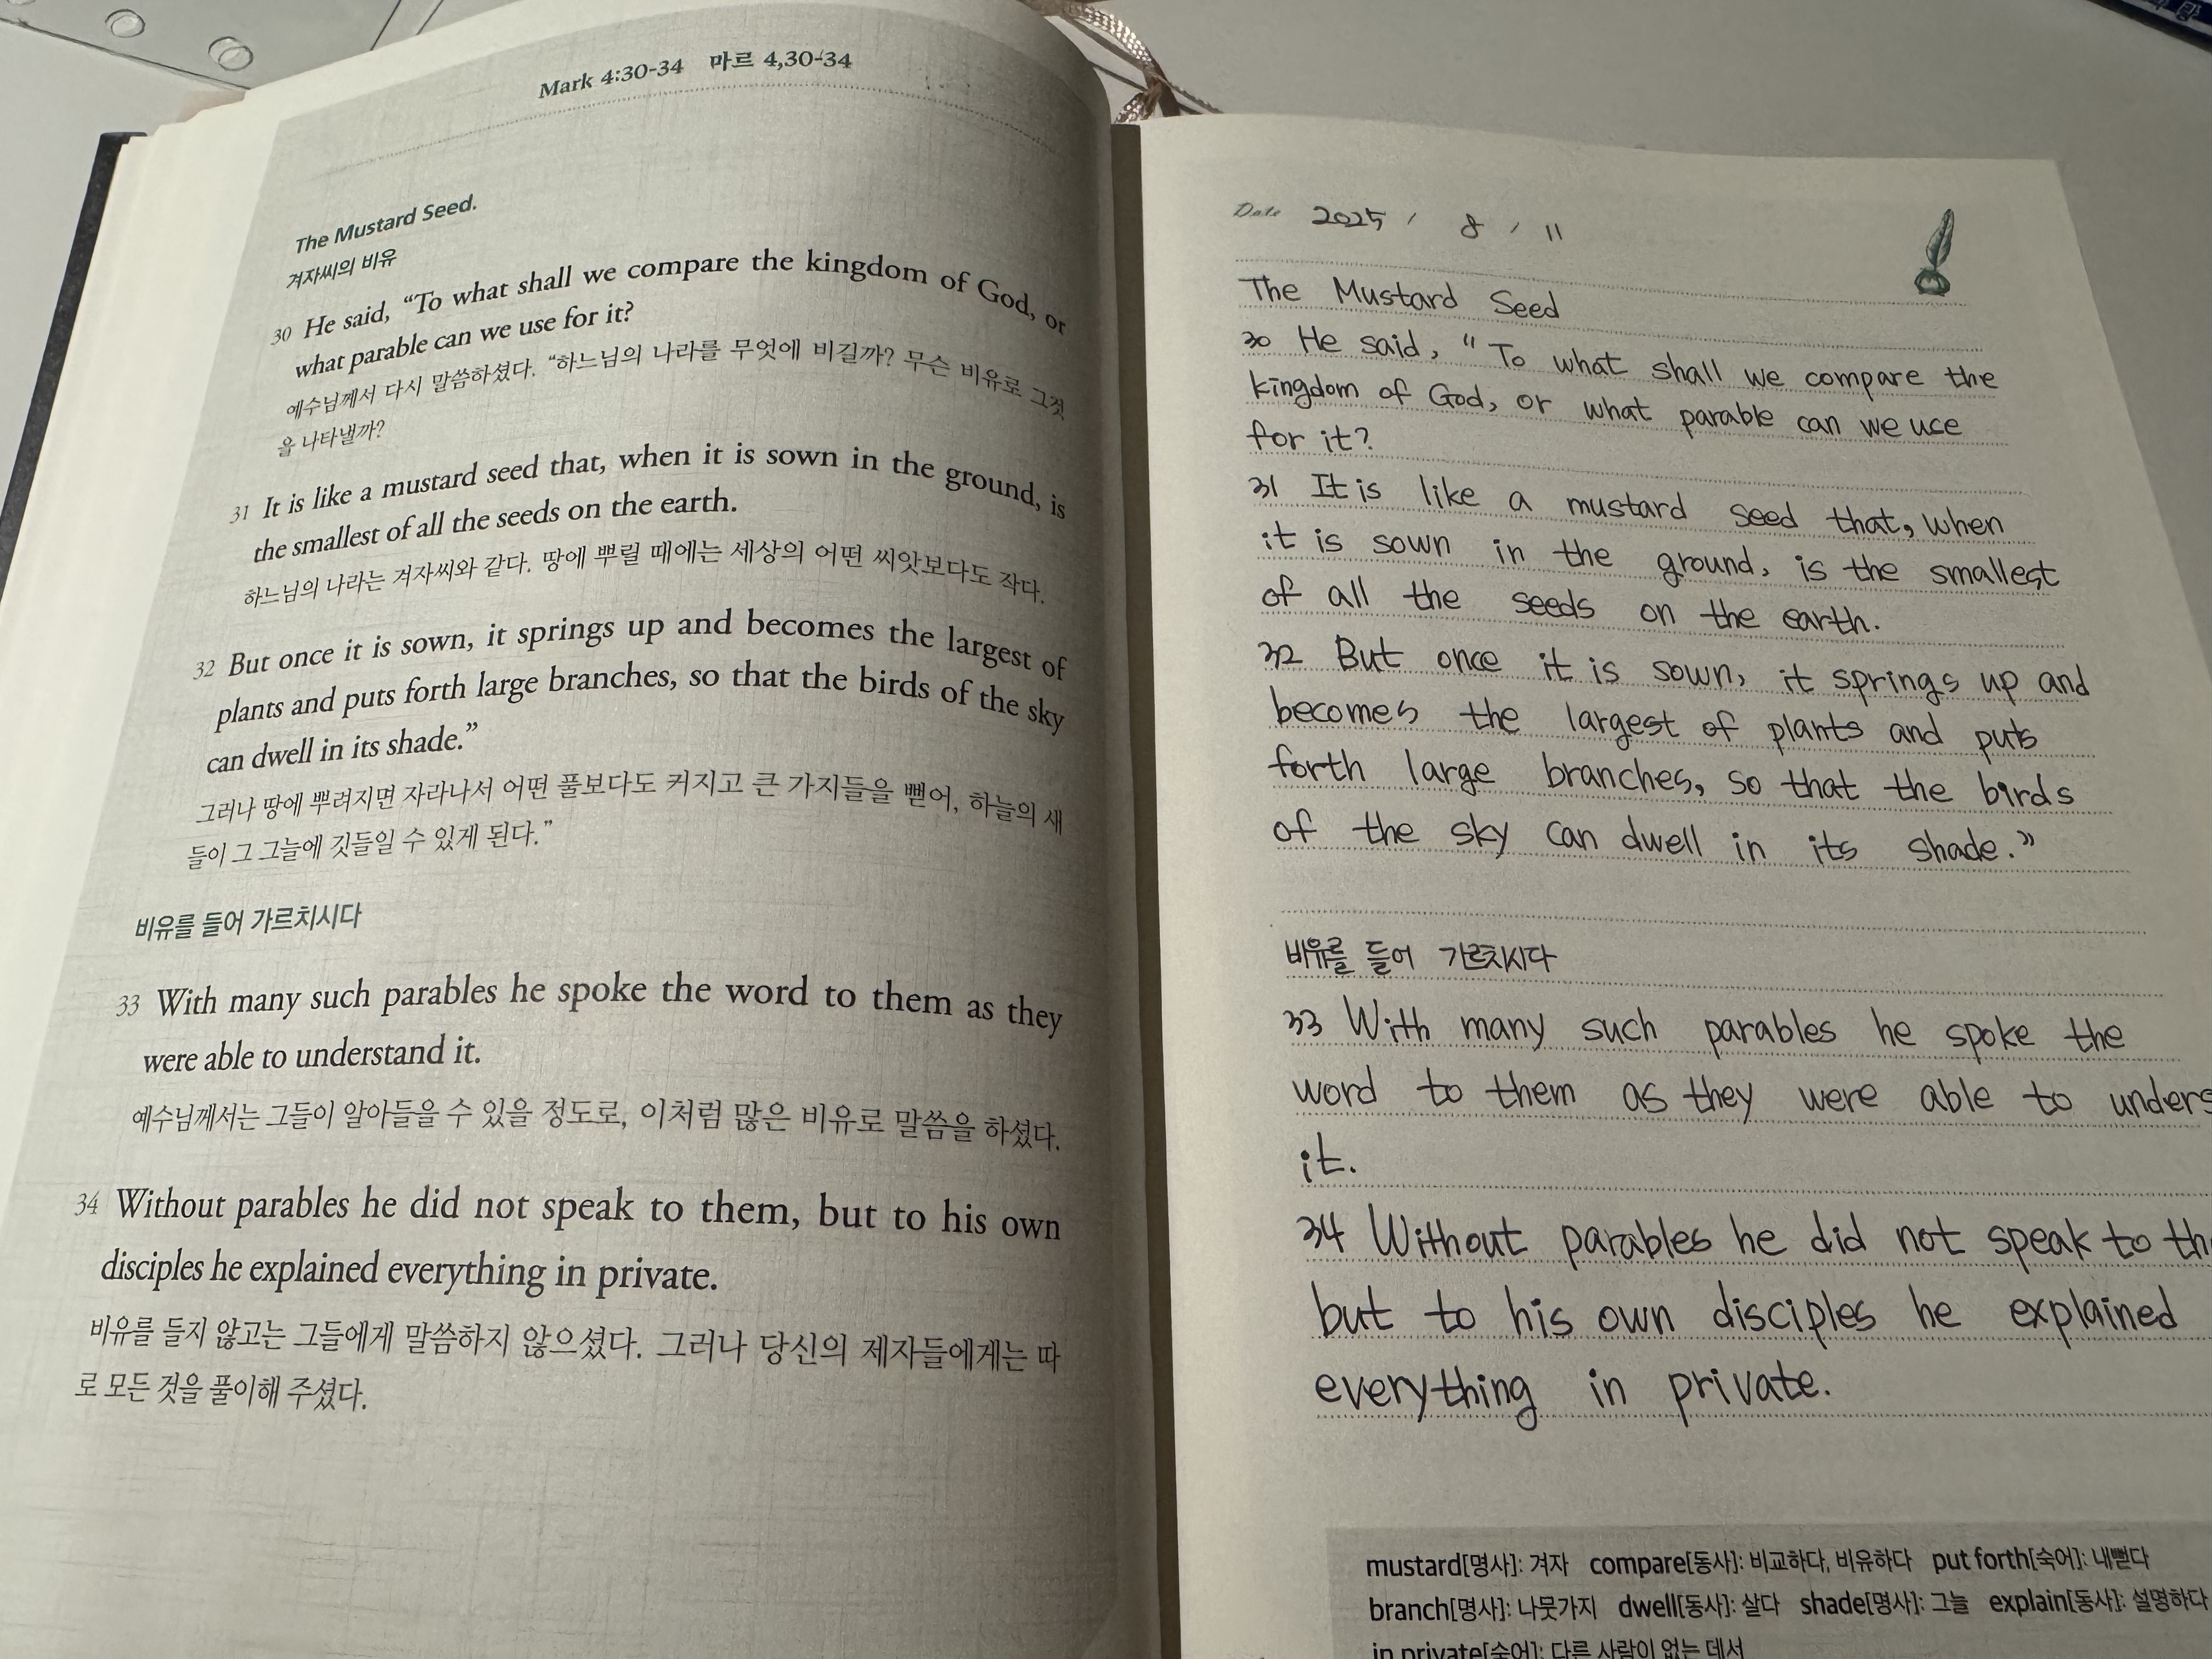 Mark 4:30-34 마르 4,30-34
The Mustard Seed.
겨자씨의 비유
30 He said, “To what shall we compare the kingdom of God, or
what parable can we use for it?
예수님께서 다시 말씀하셨다. “하느님의 나라를 무엇에 비길까? 무슨 비유로 그것
을 나타낼까?
31 It is like a mustard seed that, when it is sown in the ground, is
the smallest of all the seeds on the earth.
하느님의 나라는 겨자씨와 같다. 땅에 뿌릴 때에는 세상의 어떤 씨앗보다도 작다.
32 But once it is sown, it springs up and becomes the largest of
plants and puts forth large branches, so that the birds of the sky
can dwell in its shade.”
그러나 땅에 뿌려지면 자라나서 어떤 풀보다도 커지고 큰 가지들을 뻗어, 하늘의 새
들이 그 그늘에 깃들일 수 있게 된다.”
비유를 들어 가르치시다
33 With many such parables he spoke the word to them as they
were able to understand it.
예수님께서는 그들이 알아들을 수 있을 정도로, 이처럼 많은 비유로 말씀을 하셨다.
34 Without parables he did not speak to them, but to his own
disciples he explained everything in private.
비유를 들지 않고는 그들에게 말씀하지 않으셨다. 그러나 당신의 제자들에게는 따
로 모든 것을 풀이해 주셨다.
Date 2025 / 8 / 11
The Mustard Seed
30 He said, “To what shall we compare the
kingdom of God, or what parable can we use
for it?
31 It is like a mustard seed that, when
it is sown in the ground, is the smallest
of all the seeds on the earth.
32 But once it is sown, it springs up and
becomes the largest of plants and puts
forth large branches, so that the birds
of the sky can dwell in its shade.”
비유를 들어 가르치시다
33 With many such parables he spoke the
word to them as they were able to unders
it.
34 Without parables he did not speak to th
but to his own disciples he explained
everything in private.
mustard[명사]: 겨자 compare[동사]: 비교하다, 비유하다 put forth[숙어]: 내뻗다
branch[명사]: 나뭇가지 dwell[동사]: 살다 shade[명사]: 그늘 explain[동사]: 설명하다
in private[숙어]: 다른 사람이 없는 데서